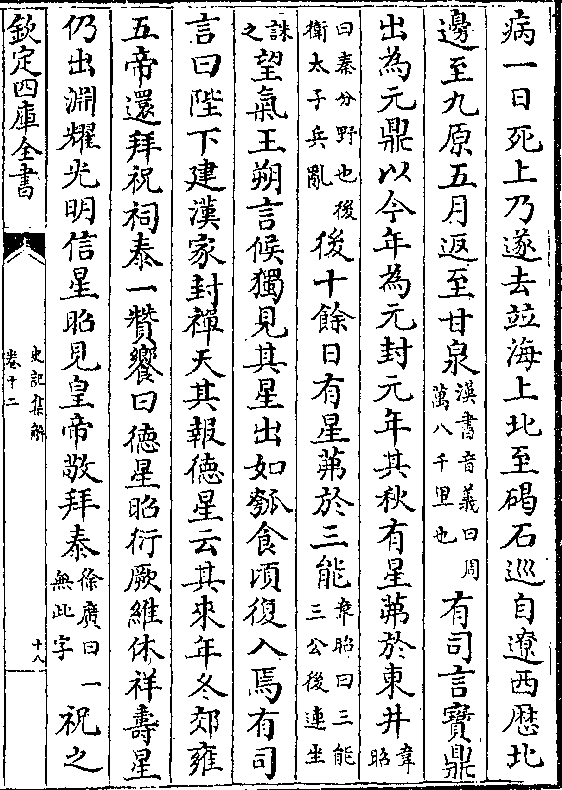 病一日死上乃遂去竝海上北至碣石巡自遼西歴北
邊至九原五月返至甘泉漢書音義曰周萬八千里也有司言寶鼎
出為元鼎以今年為元封元年其秋有星茀於東井韋昭
曰秦分野也後衛太子兵亂後十餘日有星茀於三能韋昭曰三能三公後連坐
誅之望氣王朔言候獨見其星出如瓠食頃復入焉有司
言曰陛下建漢家封禪天其報徳星云其來年冬郊雍
五帝還拜祝祠泰一贊饗曰徳星昭衍厥維休祥壽星
仍出淵耀光明信星昭見皇帝敬拜泰徐廣曰一無此字祝之
欽定四庫全書
史記集解
卷十二
十八